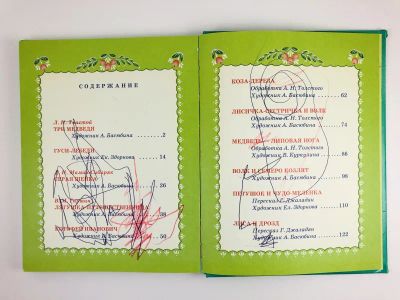 СОДЕРЖАНИЕ
Л. Н. Толстой
ТРИ МЕДВЕДЯ
Художник А. Басюбина ... 2
ГУСИ-ЛЕБЕДИ
Художник Ек. Здорнова ... 14
Художник А. Басюбина ... 26
ЛЯГУШКА-ПУТЕШЕСТВЕННИЦА
Художник А. Басюбина ... 38
ИВАНОВИЧ
Художник А. Басюбина ... 50
КОЗА-ДЕРЕЗА
Обработка А. Н. Толстого
Художник А. Басюбина ... 62
ЛИСИЧКА-СЕСТРИЧКА И ВОЛК
Обработка А. Н. Толстого
Художник А. Басюбина ... 74
МЕДВЕДЬ — ЛИПОВАЯ НОГА
Обработка А. Н. Толстого
Художник В. Куркулина ... 86
ВОЛК И СЕМЕРО КОЗЛЯТ
Художник А. Басюбина ... 98
ПЕТУШОК И ЧУДО-МЕЛЕНКА
Пересказ Г. Джаладян
Художник Ел. Здорнова ... 110
ЛИСА И ДРОЗД
Пересказ Г. Джаладян
Художник А. Басюбина ... 122